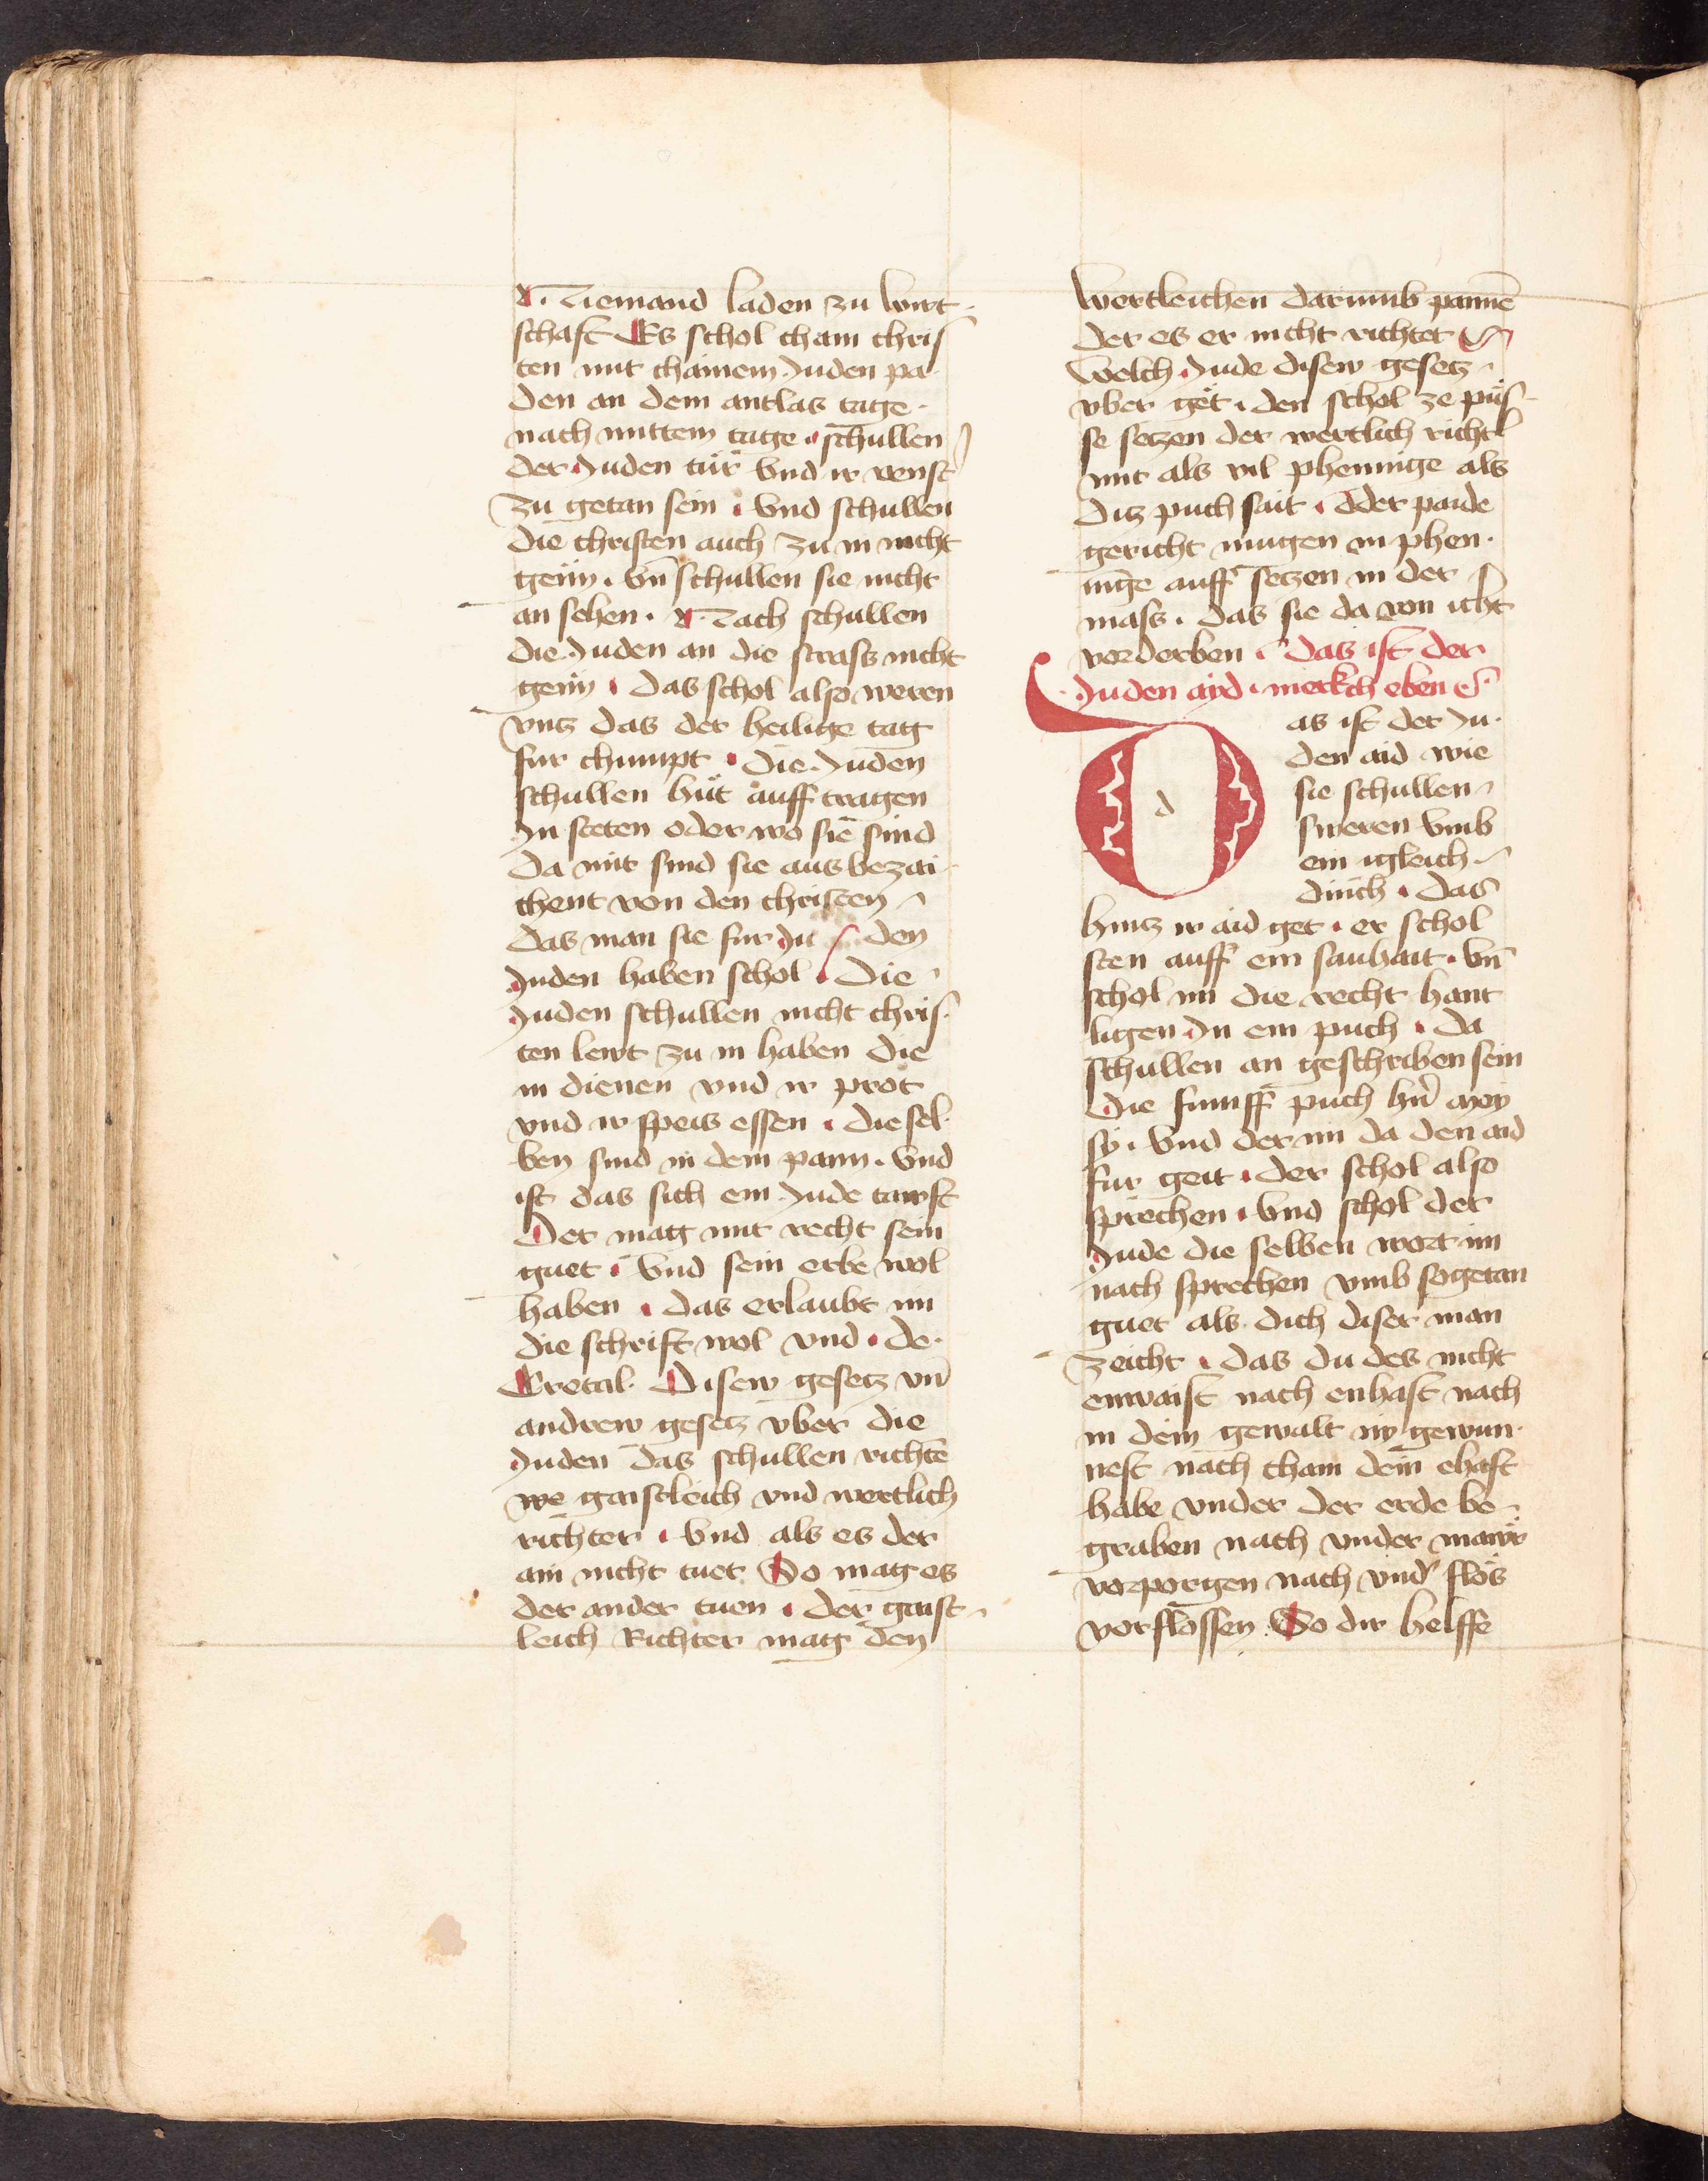 Niemand laden zu wirt-
schaft Es schol cham chris
ten mit chainem Juden pa
den an dem antlas tage.
nach mittem tage. schullen
der Juden tür Vnd ir venst
zu getan sein. Vnd schullen
die christen auch zu in nicht
genn. Vn̄ schullen sie nicht
an sehen. Nach schullen
die Juden an die strass nicht
genn. das schol also weren
vntz das der heilige tag
fur chumpt. die Juden
schullen hüt auff tragen
In steten oder wo sie sind
da mit sind sie aus bezai-
chent von den christen
das man sie fur Ju den
Juden haben schol. Die
Juden schullen nicht chris-
ten lewt zu in haben die
in dienen vnd ir prot
vnd ir speis essen. die sel-
ben sind in dem pann. Vnd
ist das sich ein Jude tawft
Der mag mit recht sein
guet. Vnd sein erbe wol
haben. das erlaubt im
die schrift wol vnd. de-
Cretal. Disew gesetz vn̄
andrew gesetz vber die
Juden das schullen richtē
we gaistleich vnd wertlich
richter. Vnd als es der
ain nicht tuet So mag es
der ander tuen. der gaist-
leich Richter mag den
wertleichen darumb pannē
der es er nicht richtet
Welch Jude disew gesetz
vber get. den schol ze püs-
se setzen der wertlich richt
mit als vil phennige als
ditz puch sait. Oder paide
gericht mugen in phen-
nige auff setzen in der
mass. das sie da von icht
verderben. das ist der
Juden ayd. merkch eben
d
as ist der Ju-
den aid wie
sie schullen
sweren vmb
ein igleich
dinch. das
hintz ir aid get. er schol
sten auff ein sauhait. vn̄
schol im die recht hant
ligen In ein puch. da
schullen an geschriben sein
Die funff puch hn̄ moy
sy. Vnd der im da den aid
fur geit. der schol also
sprechen. Vnd schol der
Jude die selben wort im
nach sprechen vmb sogetan
guet als dich diser man
zeicht. das du des nicht
enwaist nach enhast nach
in dein gewalt ny gewun-
nest nach cham dein ehaft
habe vnder der erde be-
graben nach vnder mawr
verporgen nach vnd' flos
verslossen. So dir helffe